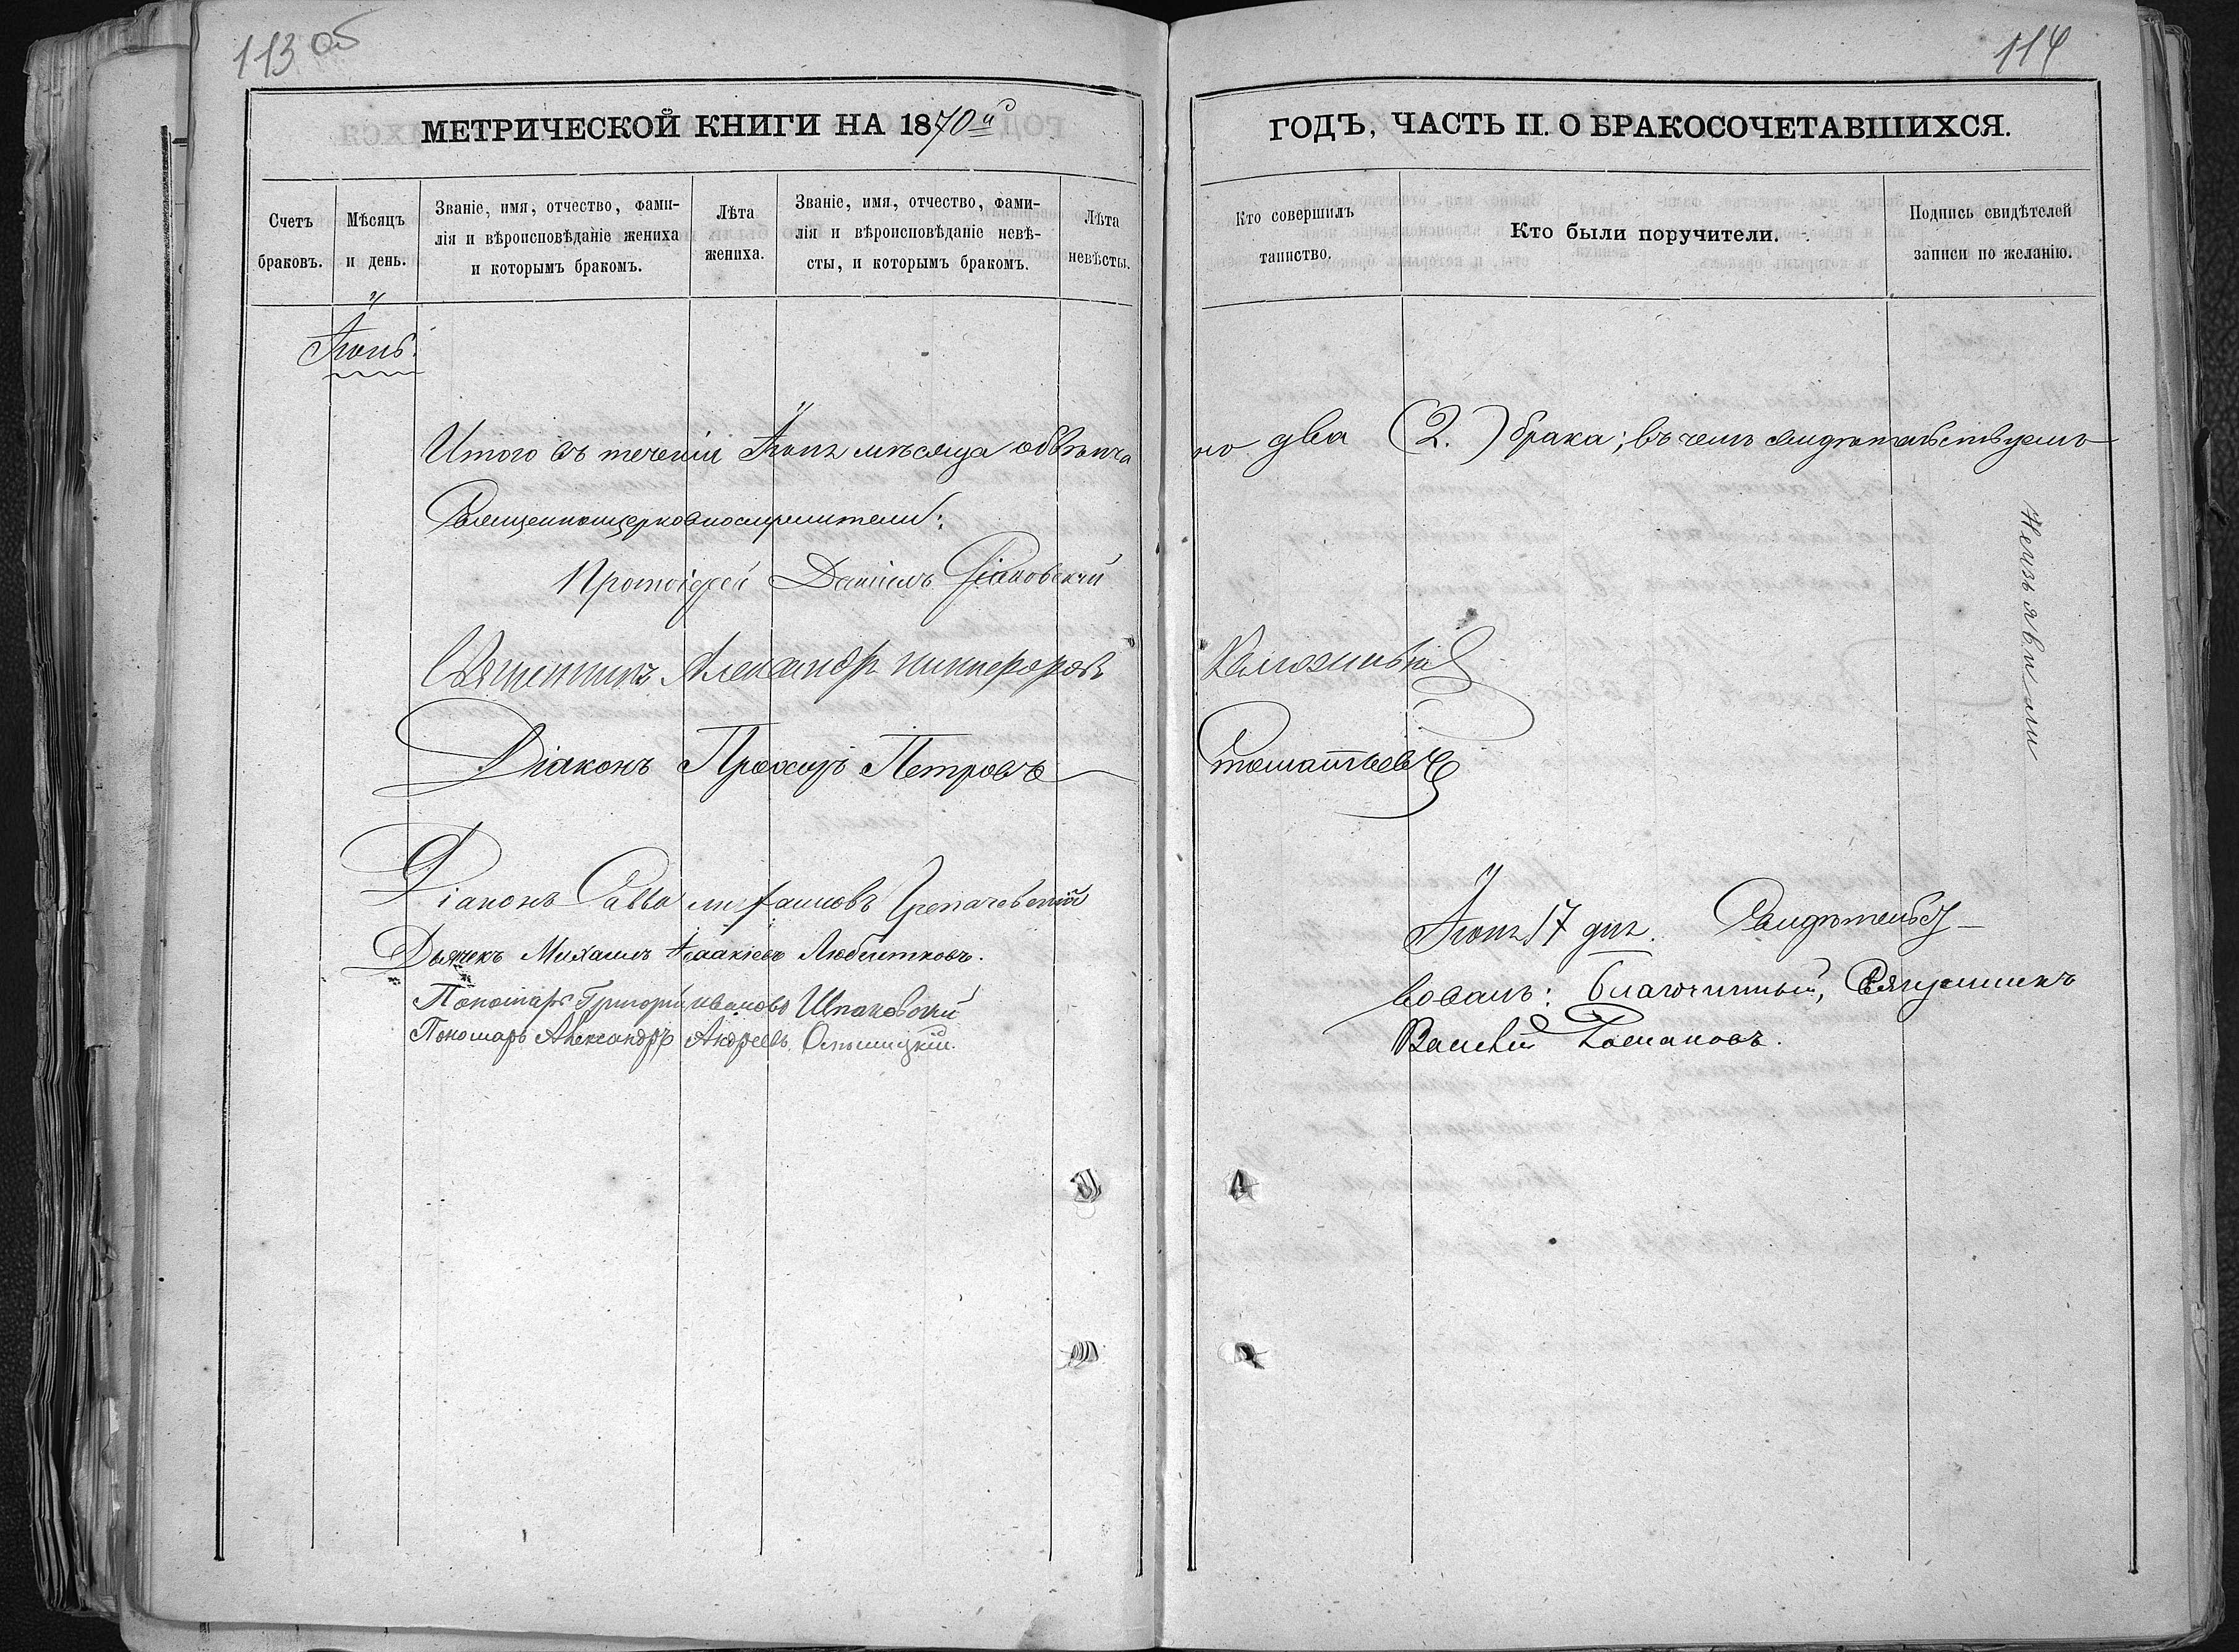 113 об
114
МЕТРИЧЕСКОЙ КНИГИ НА 1870й
Счетъ браковъ.
Мѣсяцъ и день.
Званіе, имя, отчество, фами-
лія и вѣроисповѣданіе жениха
и которымъ бракомъ.
Лѣта жениха.
Званіе, имя, отчество, фами-
лія и вѣроисповѣданіе невѣ-
сты, и которымъ бракомъ.
Лѣта невѣсты.
ГОДЪ, ЧАСТЬ II. О БРАКОСОЧЕТАВШИХСЯ.
Кто совершилъ
таинство.
Кто были поручители.
Подпись свидѣтелей
записи по желанію.
Іюнь.
Итого въ теченіи Іюня мѣсяца обвѣнча
но два (2.) брака; въ чемъ свидѣтельствуемъ
Священноцерковнослужители:
Протоіерей Даніилъ
Священникъ Александръ Никифоровъ
Діаконъ Прохоръ Петровъ
Діаконъ Савва
Дьячекъ Михаилъ Исаакіевъ Любитковъ.
Пономарь Григорій Ивановъ Шпаковскій
Пономарь Александръ Андреевъ
Іюня 17 дня. Свидѣтельст-
вовалъ: Благочинный, Священникъ
Василій Романовъ.
Не изъявили